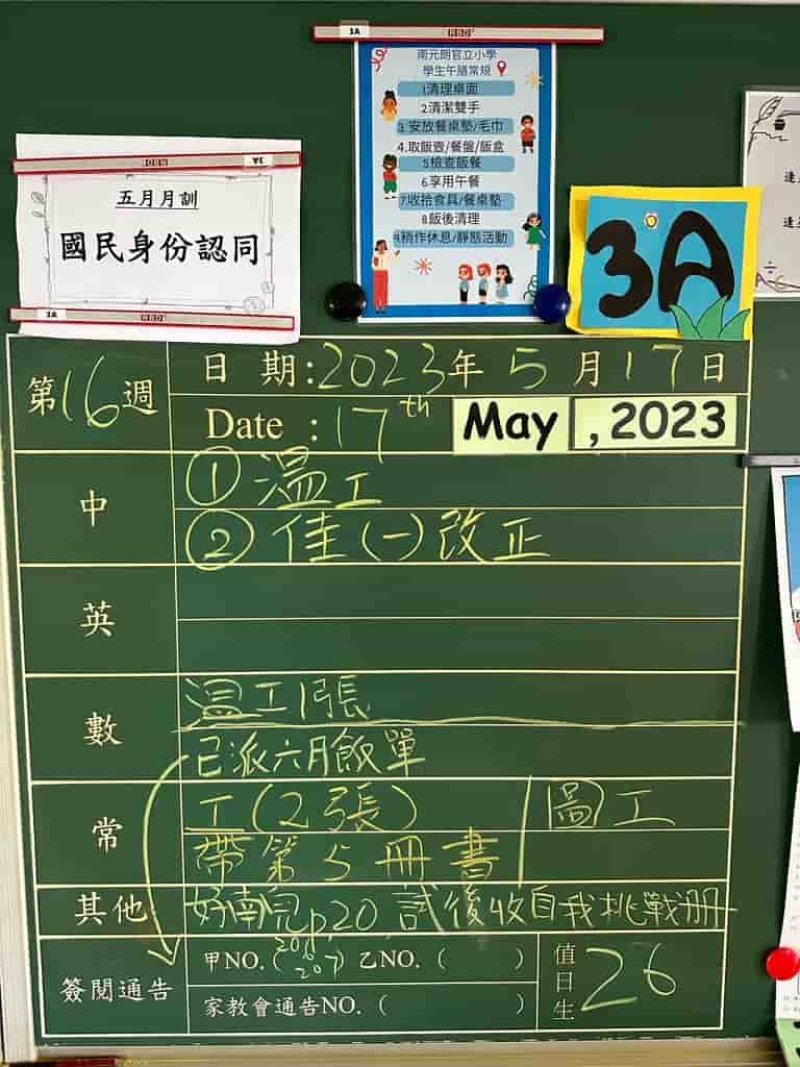 南元朗官立小學
學生午膳常規
1.清理桌面
2.清潔雙手
3.安放餐桌墊/毛巾
4.取飯壺/餐盤/飯盒
5.檢查飯餐
6.享用午餐
7.收拾食具/餐桌墊
8.飯後清理
9.稍作休息/靜態活動
五月月訓
國民身份認同
3A
第16週
日 期:2023年 5 月 17 日
Date :17th May , 2023
中
① 溫工
② 佳(一)改正
英
數
溫工1張
已派六月飯單
常
工(2張)
圖工
帶第5冊書
其他
好南兒p.20 試後收自我挑戰册
簽閱通告
甲NO.(206, 207) 乙NO.( )
家教會通告NO.( )
值日生
26